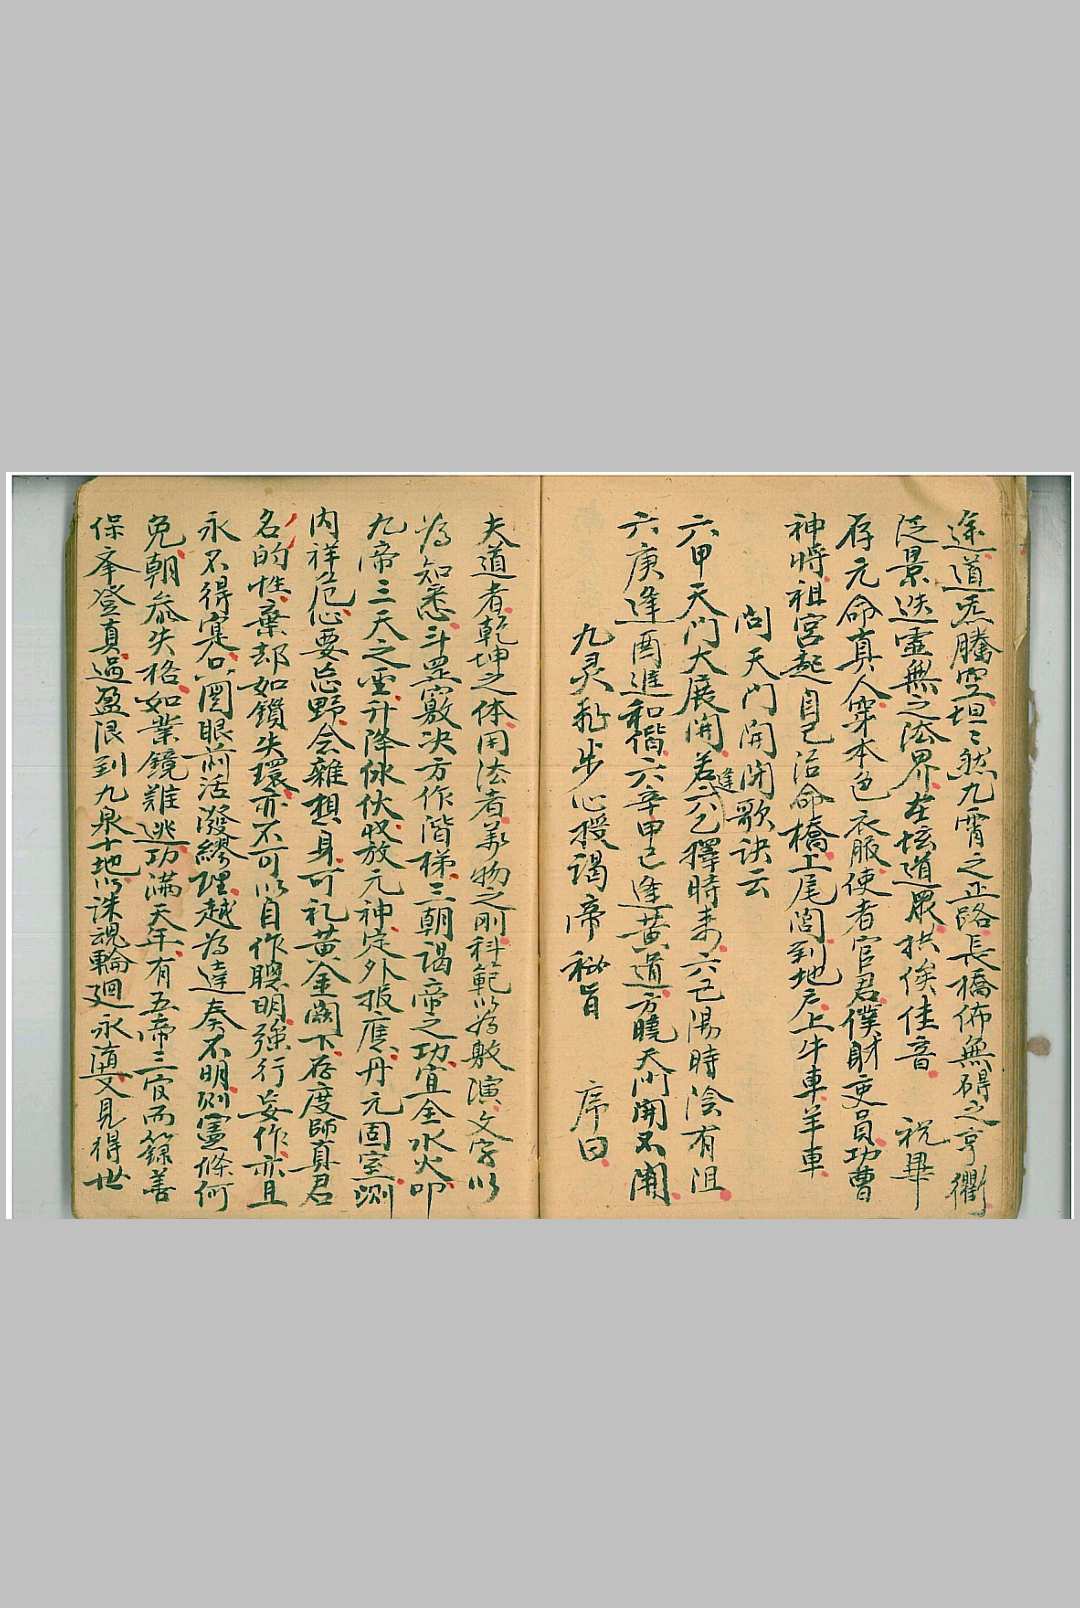 途道炁騰空坦〻然九霄之正路長橋佈無碍之亨衢
泛景迭靈無之法界在壇道眾拱俟佳音 祝畢
存元命真人穿本色衣服使者官君僕財吏員功曹
神將祖宮起自己治命橋上尾閭到地戶上牛車羊車
問天門開閉歌訣云
六甲天門大展開若逢六乙擇時來六己陽時陰有沮
六庚逢酉進和偕六辛甲己逢黃道方曉天門開不開
九灵飛步心授謁帝秘旨 序曰
夫道者乾坤之体用法者萬物之剛科範以為敷演文字以
為知悉斗罡竅決方作階梯三朝謁帝之功宜全水火叩
九帝三天之堊升降俶伏收放元神定外振應丹元固室測
内祥危心要忘野念雜想身可礼黃金闕下存度師真君
名的性棄却如鎖失環亦不可以自作聰明強行妄作亦且
永不得寔口閉眼前活潑繆理越為達奏不明則憲條何
免朝叅失格如業鏡難逃功滿天年有五帝三官而錄善
保奉登真過盈限到九泉十地以誅魂輪廻永墮又見得世